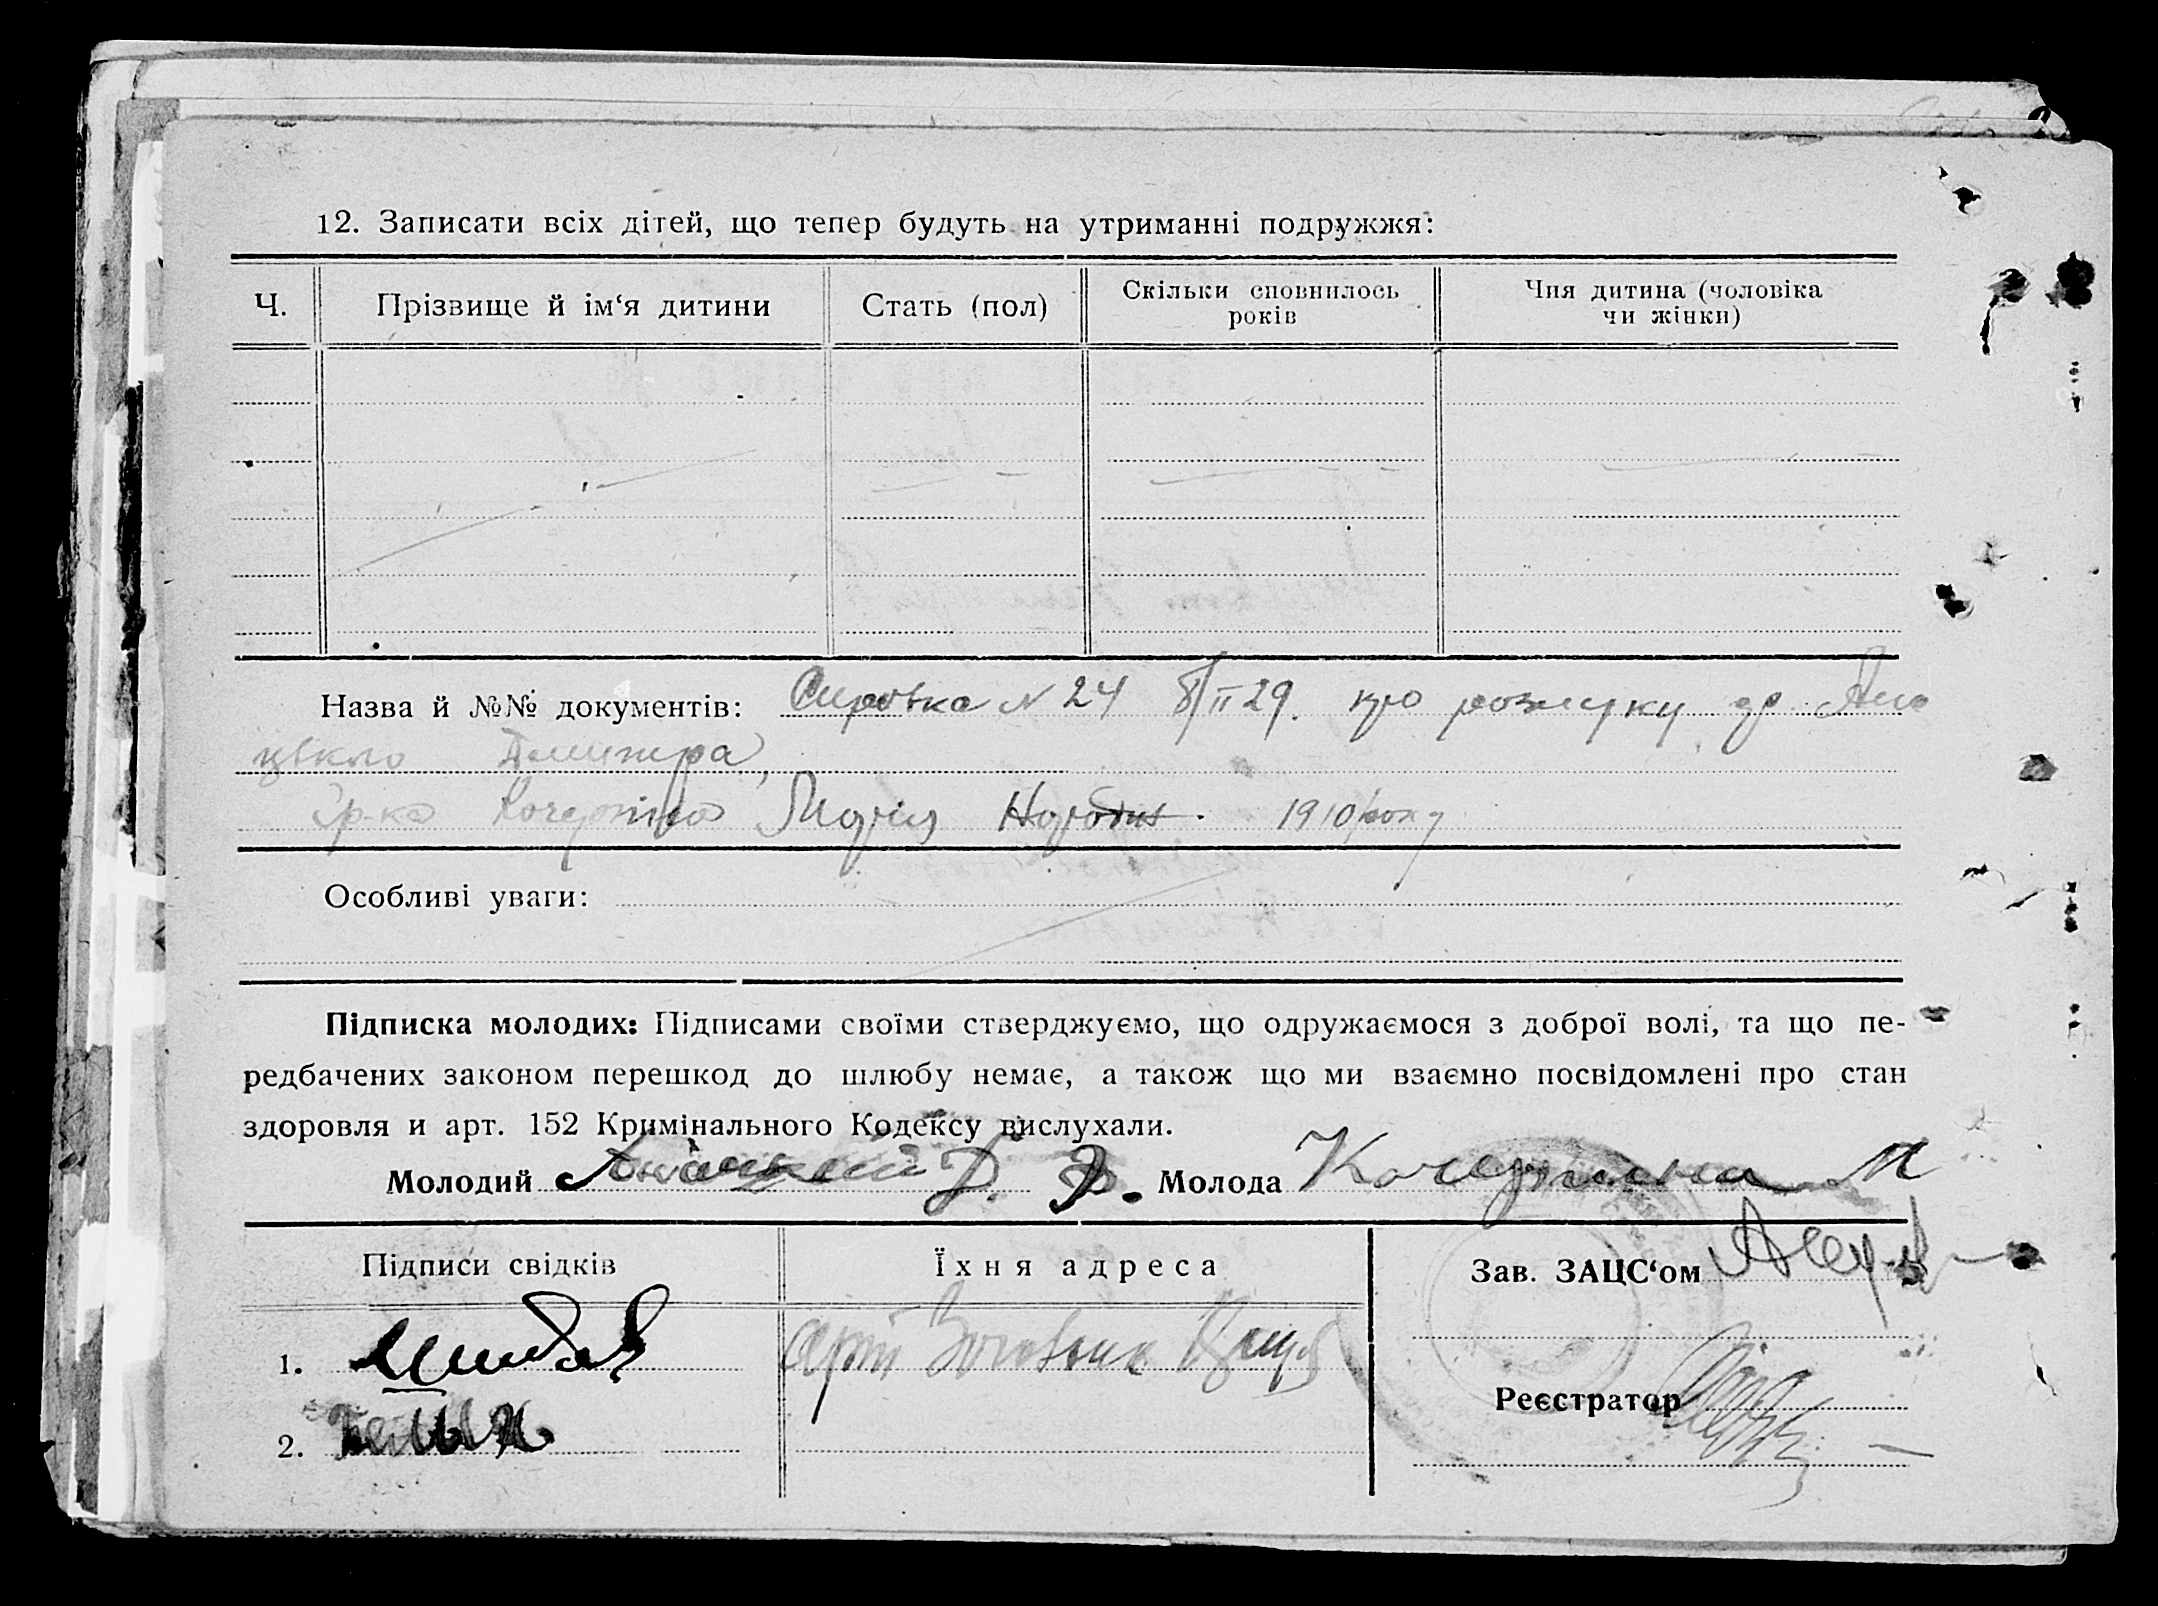 12. Записати всіх дітей, що тепер будуть на утриманні подружжя:
Ч.
Прізвище й ім‘я дитини
Стать (пол)
Скільки сповнилось
років
Чия дитина (чоловіка
чи жінки)
Назва й №№ документів: Справка N 24 8/II 29. про розлуку гр.
Дмитра,
Гр-ка Марія 1910 року
Особливі уваги:
Підписка молодих: Підписами своїми стверджуємо, що одружаємося з доброї волі, та що пе-
редбачених законом перешкод до шлюбу немає, а також що ми взаємно посвідомлені про стан
здоровля и арт. 152 Кримінального Кодексу вислухали.
Молодий Д. Молода М
Підписи свідків
Їхня адреса
Зав. ЗАЦС‘ом
1.
Реєстратор
2.